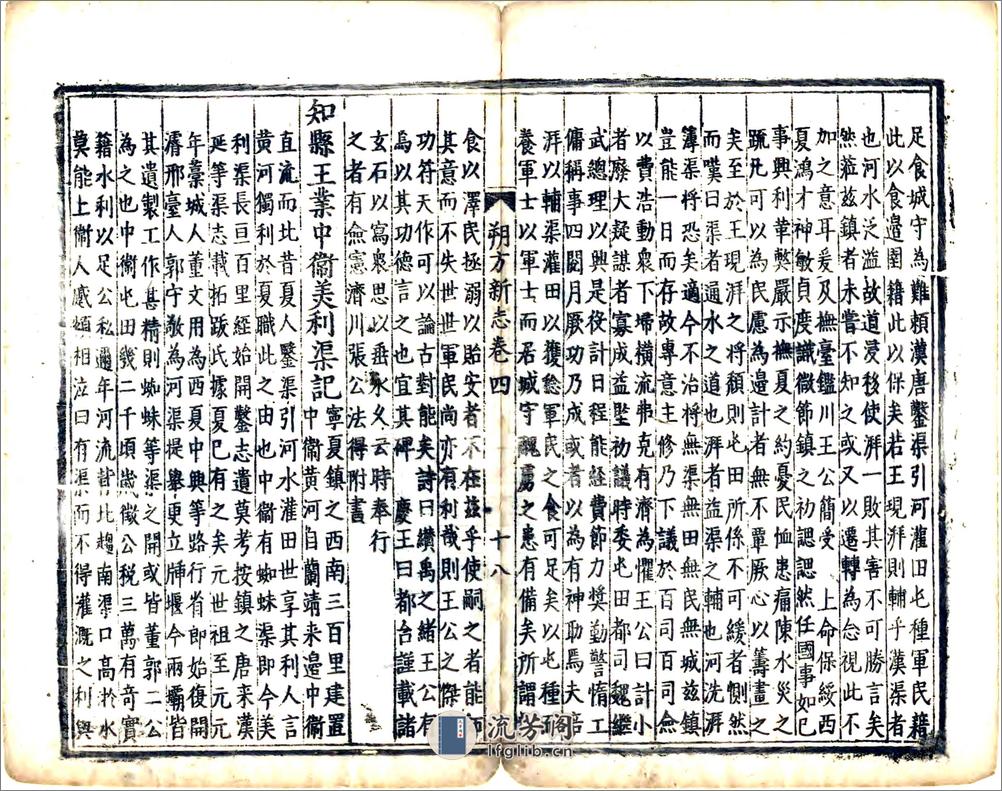 足食城守為難頼漢唐鑿渠引河灌田屯種軍民藉
此以食食邉圉籍此以保矣若王現湃則輔乎漢渠者
也河水泛溢故道浸移使湃一敗其害不可勝言矣
然蒞兹鎮者未嘗不知之或又以遷轉為怠視此不
加之意耳爰及撫臺鑑川王公簡受 上命保綏西
夏鴻才神敏貞度識微節鎮之初認認然任國事如己
事興利華弊嚴示撫夏之約憂民恤患痛陳水災之
䟽凡可以為民慮為邉計者無不覃厥心以籌畫之
矣至於王現湃之将頽則屯田所係不可緩者惻然
而嘆曰渠者通水之道也湃者益渠之輔也河洗湃
簿渠将恐矣適今不治将無渠無田無民無城兹鎮
豈能一日而存故專意主修乃下議於百司百司僉
以費浩動衆下埽横流弗克有濟為懼王公曰計小
者廢大疑謀者寡成益堅初議時委屯田都司魏繼
武總理以興是役計日程能経費節力奬勤警惰工
傭稱事四閲月厥功乃成或者以為有神助焉夫培
湃以輔渠灌田以獲稔軍民之食可足矣以屯種
養軍士以軍士而居城守醜虜之患有備矣所謂
朔方新志卷四 十八
食以澤民拯溺以貽安者不在兹乎使嗣之者能
其意而不失世世軍民尚亦有利哉則王公之傑
功符天作可以論古對能矣詩曰纘禹之緒王公有
焉以其功德言之也宜其碑 慶王曰都台謹載諸
玄石以寫衆思以垂永久云時奉行
之者有僉憲濟川張公法得附書
知縣王業中衛美利渠記 寧夏鎮之西南三百里建置
中衛黄河自蘭靖来邉中衛
直流而北昔夏人鑿渠引河水灌田世享其利人言
黄河獨利於夏職此之由也中衛有蜘蛛渠即今美
利渠長亘百里經始開鑿志遺莫考按鎮之唐来漢
延等渠志載拓跋氏據夏已有之矣元世祖至元元
年藁城人董文用為西夏中興等路行省即始復開
濬邢臺人郭守敬為河渠提舉更立牐堰今兩壩皆
其遺製工作甚精則蜘蛛等渠之開或皆董郭二公
為之也中衛屯田幾二千頃歲徵公税三萬有奇實
籍水利以足公私邇年河流背北趨南渠口高於水
莫能上衛人慼頞相泣曰有渠而不得灌溉之利與
流芳阁
lfglib.cn